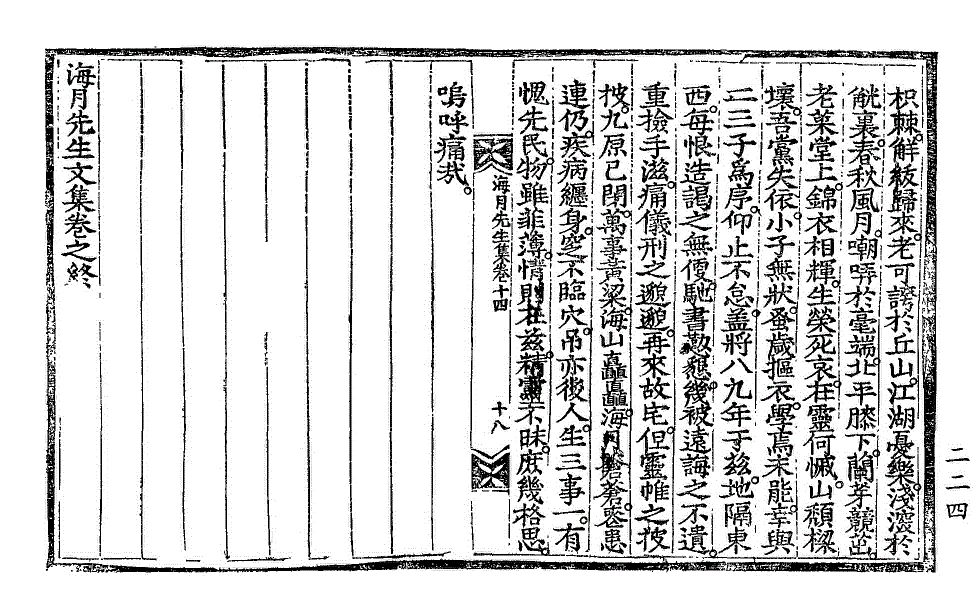 枳棘。解紱歸來。老可誇於丘山。江湖憂樂。淺深於
觥裏。春秋風月。嘲哢於毫端。北平膝下。蘭芽競茁。
老萊堂上。錦衣相輝。生榮死哀。在靈何慽。山頹樑
壞。吾黨失依。小子無狀。蚤歲摳衣。學焉未能。幸與
二三子爲序。仰止不怠。盖將八九年于茲。地隔東
西。每恨造謁之無便。馳書懃懇。幾被遠誨之不遺。
重撿手滋。痛儀刑之邈邈。再來故宅。但靈帷之披
披。九原已閉。萬事黃粱。海山矗矗。海月蒼蒼。喪患
連仍。疾病纏身。窆不臨穴。吊亦後人。生三事一。有
愧先民。物雖菲薄。情則在茲。精靈不昧。庶幾格思。
海月先生集卷十四
十八
嗚呼痛哉。
海月先生文集卷之終
二二四